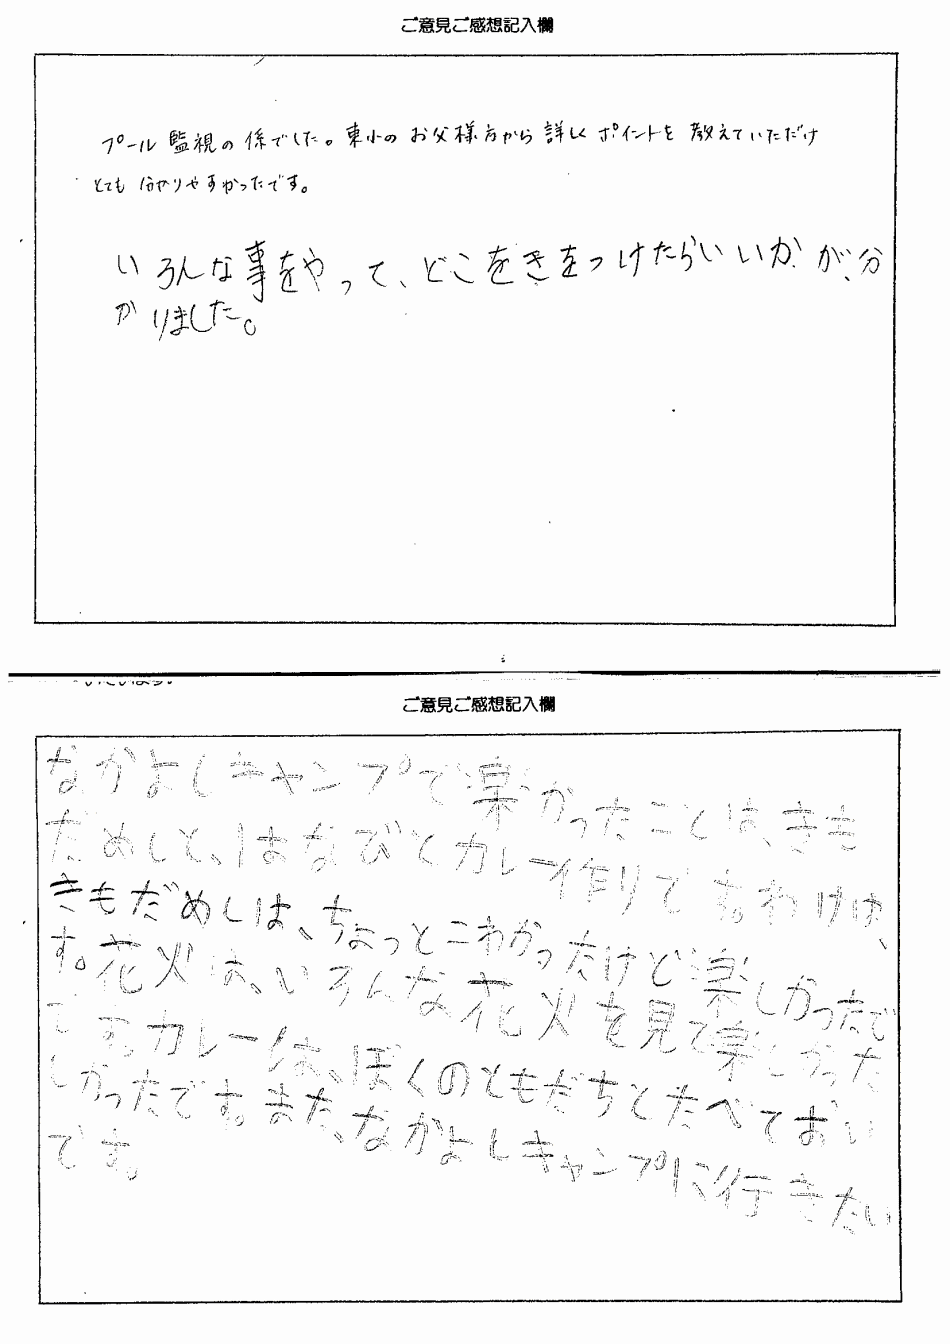 ご意見ご感想記入欄
プール監視の係でした。東小のお父様方から詳しくポイントを教えていただけ
とても分かりやすかったです。
いろんな事をやって、どこをきをつけたらいいかが、分
かりました。
ご意見ご感想記入欄
なかよしキャンプで楽かったことは、きも
だめしと、はなびとカレー作りです。わけは、
きもだめしは、ちょっとこわかったけど楽しかったで
す。花火は、いろんな花火を見て楽しかった
です。カレーは、ぼくのともだちとたべておい
しかったです。また、なかよしキャンプに行きたい
です。